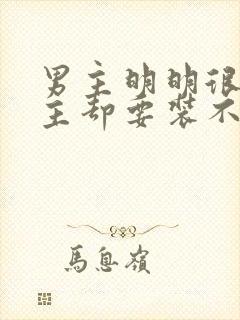 男主明明很
主却要装不
馬息嶺